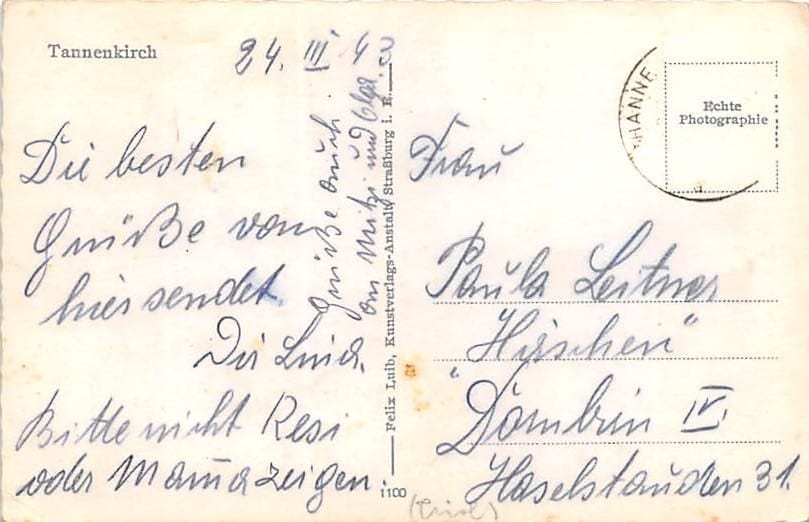 Tannenkirch
24. III 43
Die besten
Grüße von
hier sendet
Dir Luia.
Bitte nicht Resi
oder Mama zeigen.
Grüße auch
an Mitzi und
Felix Luib, Kunstverlags-Anstalt, Straßburg i. E.
1100
HANNE
Echte
Photographie
Frau
Paula Leitner
"Hirschen"
Dornbirn IV.
Haselstauden 31.